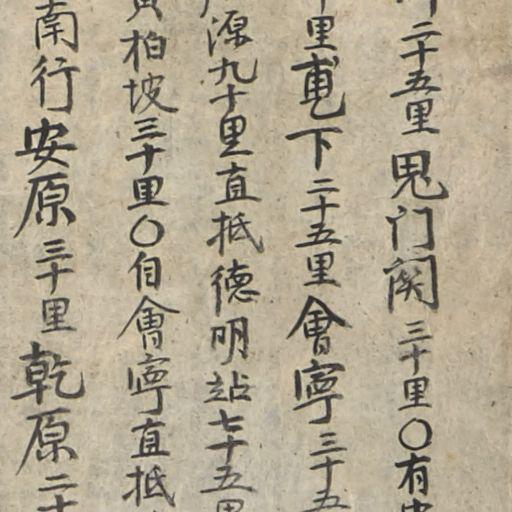 二十五里鬼门関三十里〇有
里甫下二十五里會寧三十五
源九十里直抵德明站七十五里
黄柏坡三十里〇自會寧直抵
南行安原三十里乾原二十